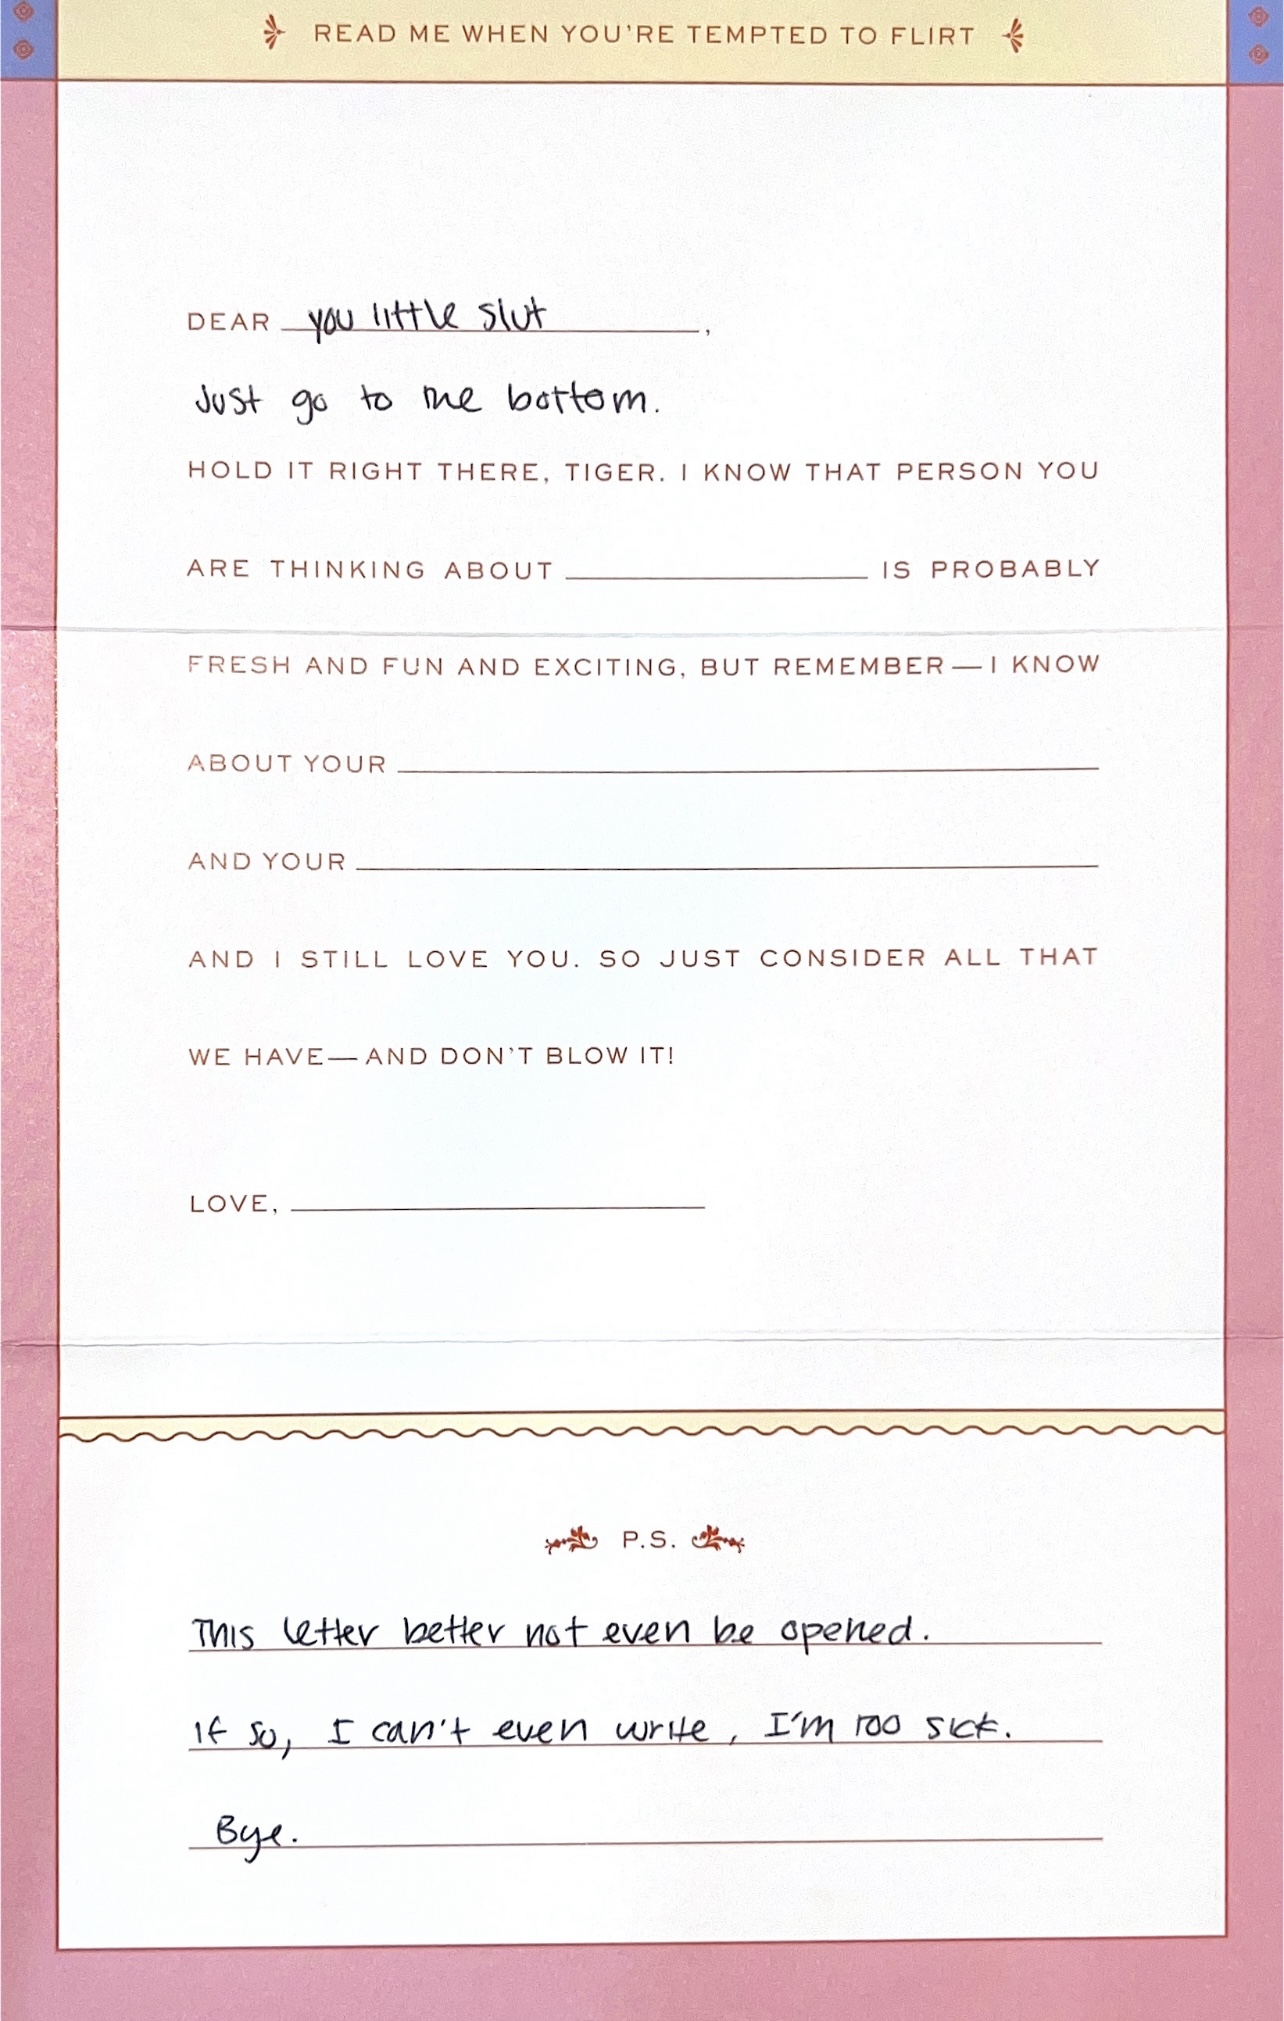 READ ME WHEN YOU'RE TEMPTED TO FLIRT
DEAR you little slut,
Just go to the bottom.
HOLD IT RIGHT THERE, TIGER. I KNOW THAT PERSON YOU
ARE THINKING ABOUT IS PROBABLY
FRESH AND FUN AND EXCITING, BUT REMEMBER—I KNOW
ABOUT YOUR
AND YOUR
AND I STILL LOVE YOU. SO JUST CONSIDER ALL THAT
WE HAVE—AND DON'T BLOW IT!
LOVE,
P.S.
This letter better not even be opened.
If so, I can't even write, I'm too sick.
Bye.